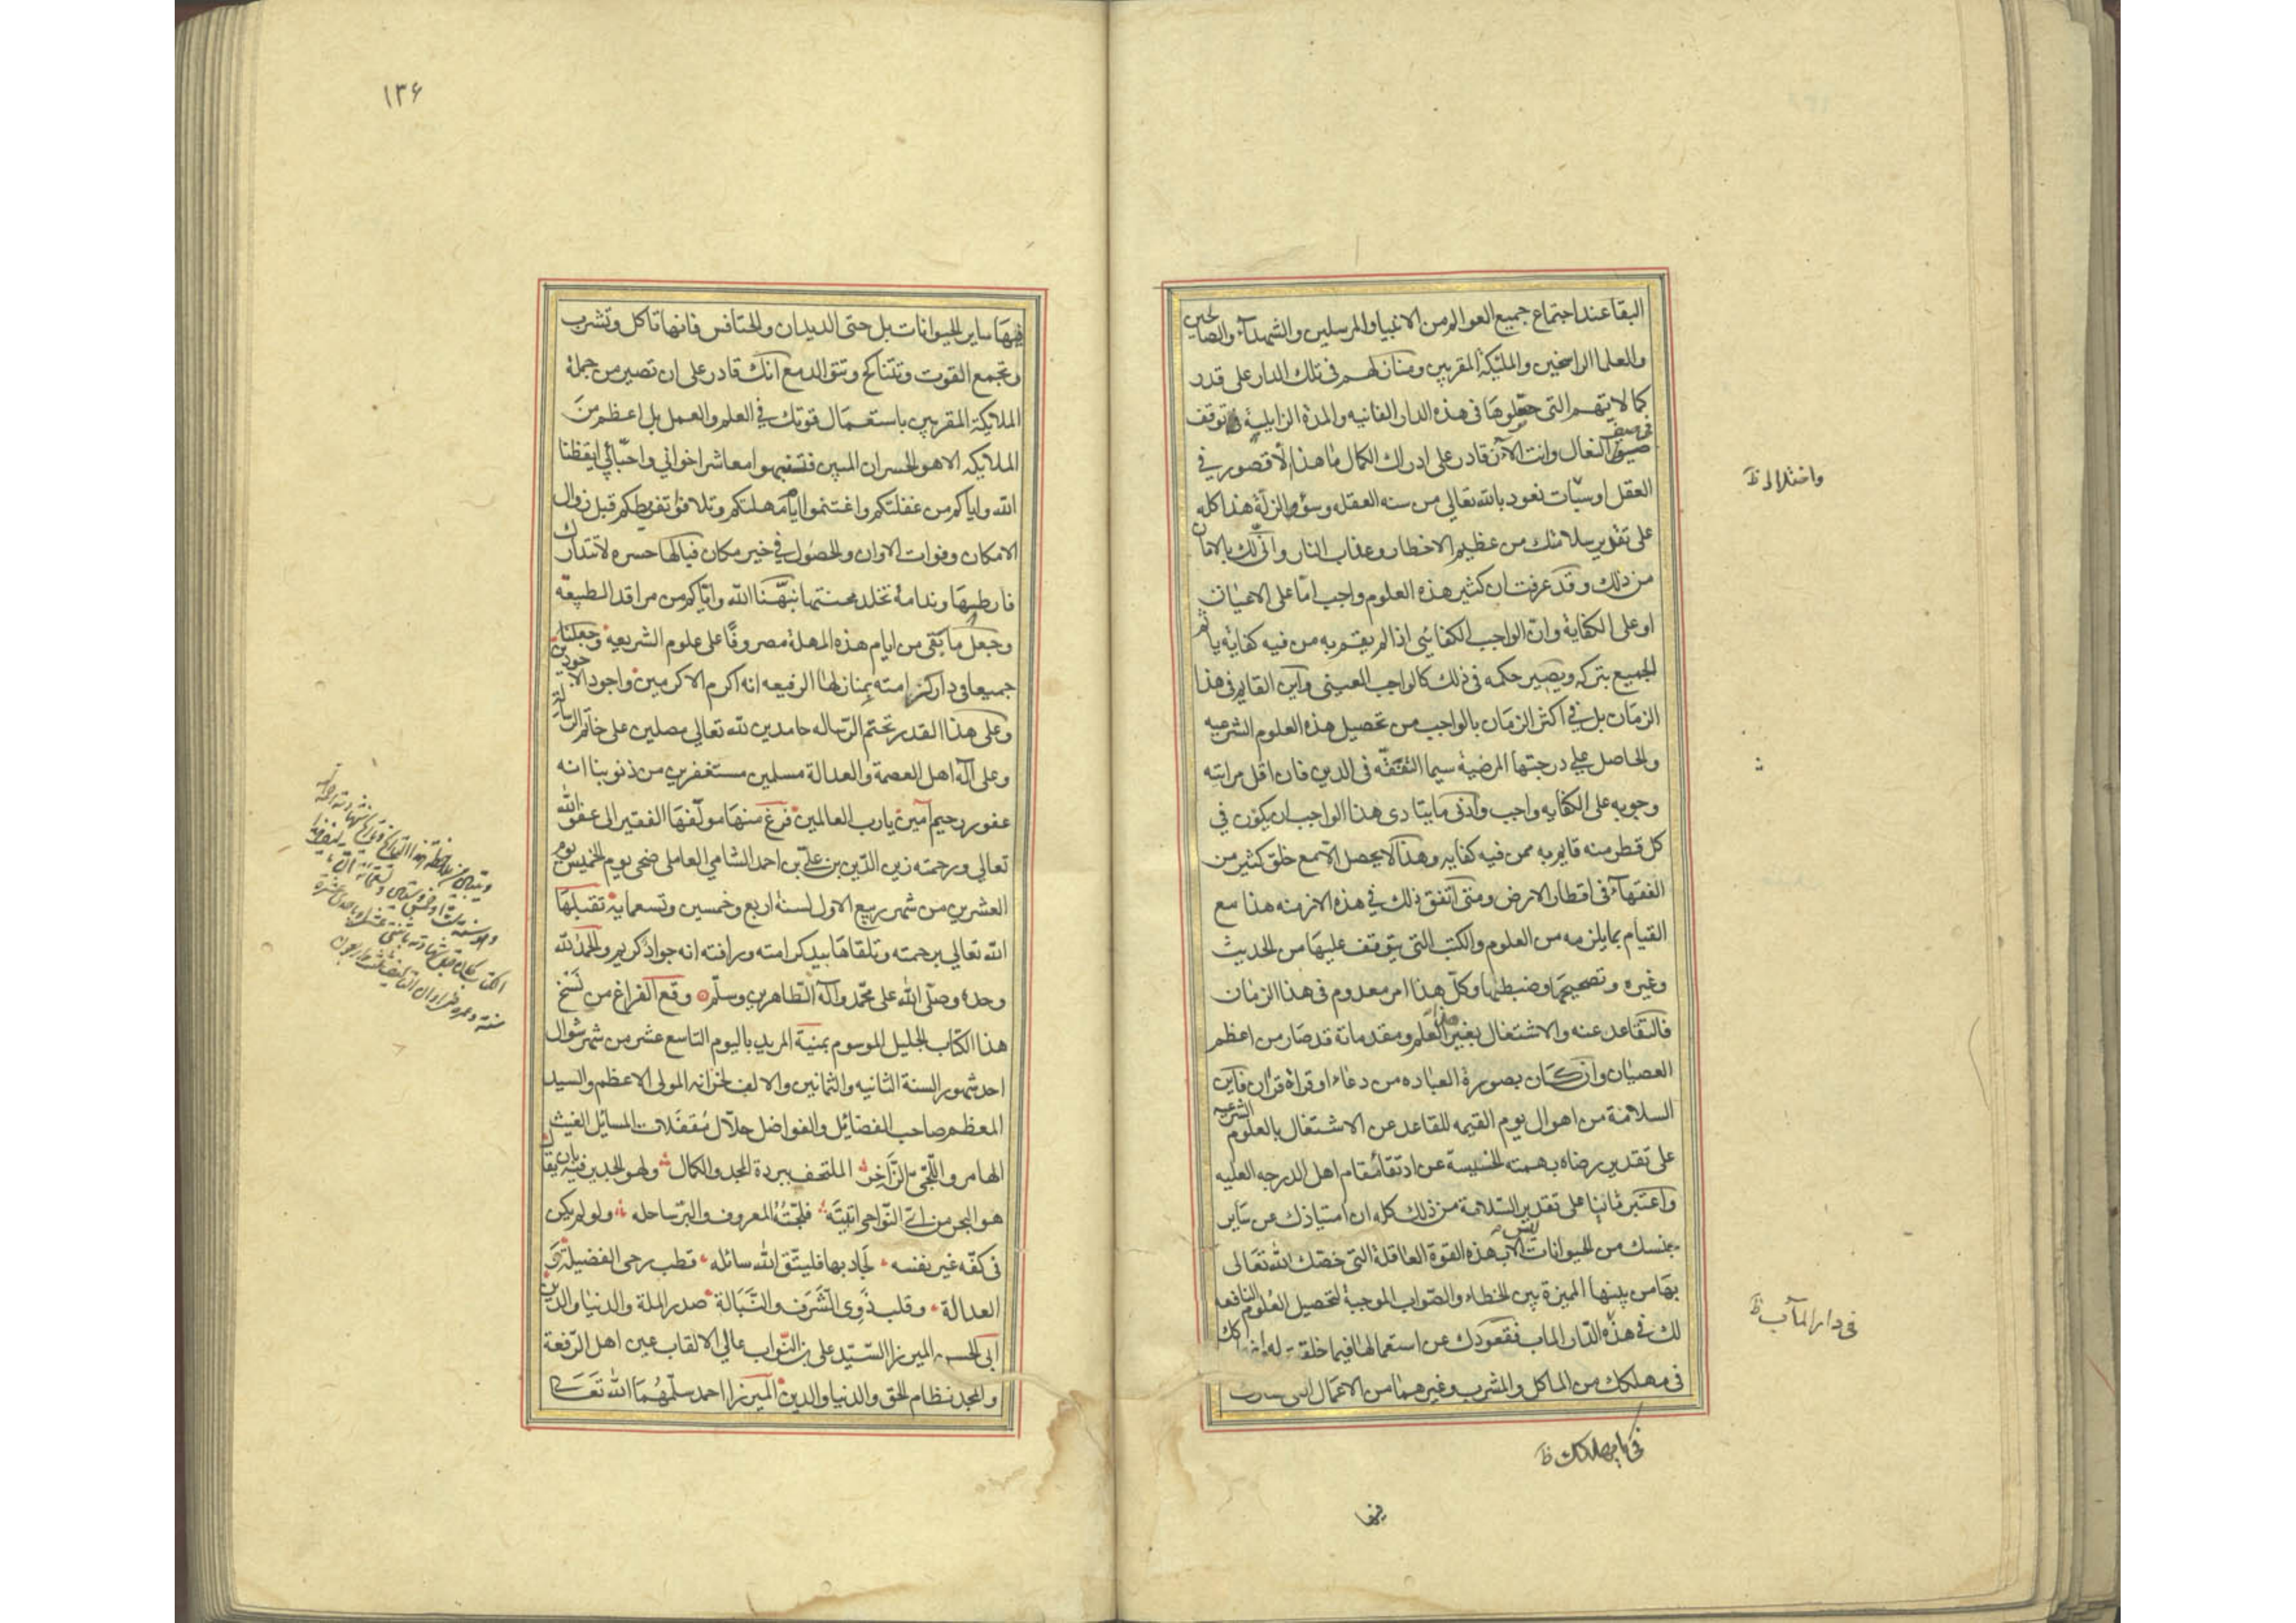 البقا عند اجتماع جميع العوالم من الانبيا والمرسلين والشهداء والصالحين
والعلما الراسخين والمليكة المقربين ومنازلهم فى تلك الدار على قدر
كمالاتهم التى حصلوها فى هذه الدار الفانيه والمدة الزايلة
النعال وانت الآن قادر على ادراك الكمال ما هذا الا قصور فى
العقل او سبات نعوذ بالله تعالى من سنه الغفله وسوء الزلة هذا كله
على تقدير سلامتك من عظيم الاخطار وعذاب النار وانى لك بالامان
من ذلك وقد عرفت ان كثير هذه العلوم واجب اما على الاعيان
او على الكفاية وان الواجب الكفائى اذا لم يقم به من فيه كفاية ياثم
الجميع بتركه ويصير حكمه فى ذلك كالواجب العينى واين القايم فى هذا
الزمان بل فى اكثر الزمان بالواجب من تحصيل هذه العلوم الشرعيه
والحاصل على درجتها المرضية سيما التفقه فى الدين فان اقل مراتبه
وجوبه على الكفايه واجب وادنى ما يتادى هذا الواجب ان يكون فى
كل قطر منه قايم به ممن فيه كفايه وهذا لا يحصل الا مع خلق كثير من
الفقهاء فى اقطار الارض ومتى اتفق ذلك فى هذه الازمنه هذا مع
القيام بما يلزمه من العلوم والكتب التى يتوقف عليها من الحديث
وغيره وتصحيحها وضبطها وكل هذا امر معدوم فى هذا الزمان
فالتقاعد عنه والاشتغال بغير العلم ومقدماته قد صار من اعظم
العصيان وان كان بصورة العباده من دعاء او قراة قران فاين
السلامة من اهوال يوم القيمه للقاعد عن الاشتغال بالعلوم الشرعيه
على تقدير رضاه بهمته الخسيسة عن ارتقاء مقام اهل الدرجه العليه
واعتبر ثانيا على تقدير السلامة من ذلك كله ان امتيازك عن ساير
جنسك من الحيوانات ليس الا بهذه القوة العاقلة التى خصك الله تعالى
بها من بينها المميزة بين الخطاء والصواب الموجبة لتحصيل العلوم النافعه
لك فى هذه الدار الماب فقعودك عن استعمالها فيما خلقت له
فى مهلكك من الماكل والمشرب وغيرهما من الاعمال التى
فى دار المآب ظ
فيها
١٣۶
فيها ساير الحيوانات بل حتى الديدان والخنافس فانها تاكل وتشرب
وتجمع القوت وتتناكح وتتوالد مع انك قادر على ان تصير من جملة
الملايكة المقربين باستعمال قوتك فى العلم والعمل بل اعظم من
الملايكه الا هو الخسران المبين فتنبهوا معاشر اخوانى واحبائى ايقظنا
الله واياكم من غفلتكم واغتنموا ايام مهلتكم وتلافوا تفريطكم قبل زوال
الامكان وفوات الاوان والحصول فى خبر مكان فيالها حسرة لا تتدارك
فارطها وندامة تخلد محنتها نبهنا الله واياكم من مراقد الطبيعه
وجعل ما بقى من ايام هذه المهلة مصروفا على علوم الشريعه وجعلنا
جميعا فى دار كرامته بمنازلها الرفيعه انه اكرم الاكرمين واجود الاجودين
وعلى هذا القدر نختم الرساله حامدين لله تعالى مصلين على خاتم الرسالة
وعلى آله اهل العصمة والعدالة مسلمين مستغفرين من ذنوبنا انه
غفور رحيم آمين يا رب العالمين فرغ منها مولفها الفقير الى عفو الله
تعالى ورحمته زين الدين بن على بن احمد الشامى العاملى ضحى يوم الخميس يوم
العشرين من شهر ربيع الاول لسنة اربع وخمسين وتسعماية تقبلها
الله تعالى برحمته وتلقاها بيد كرامته ورافته انه جواد كريم والحمد لله
وحده وصلى الله على محمد وآله الطاهرين وسلم وقع الفراغ من نسخ
هذا الكتاب الجليل الموسوم بمنية المريد باليوم التاسع عشر من شهر شوال
احد شهور السنة الثانيه والثمانين والالف لخزانه المولى الاعظم والسيد
المعظم صاحب الفضائل والفواضل حلال مقفلات المسائل الغيث
الهامر واللجى الزاخر الملتحف ببردة المجد والكمال ولهو الجدير فيه بان يقال
هو البحر من اى النواحى اتيته فلجته المعروف والبر ساحله ولو لم يكن
فى كفه غير نفسه لجاد بها فليتق الله سائله قطب رحى الفضيلة و
العدالة وقلب ذوى الشرف والنبالة صدر الملة والدنيا والدين
ابى الحسن الميرزا السيد على بن النواب عالى الالقاب عين اهل الرفعة
والمجد نظام الحق والدنيا والدين الميرزا احمد سلمهما الله تعالى